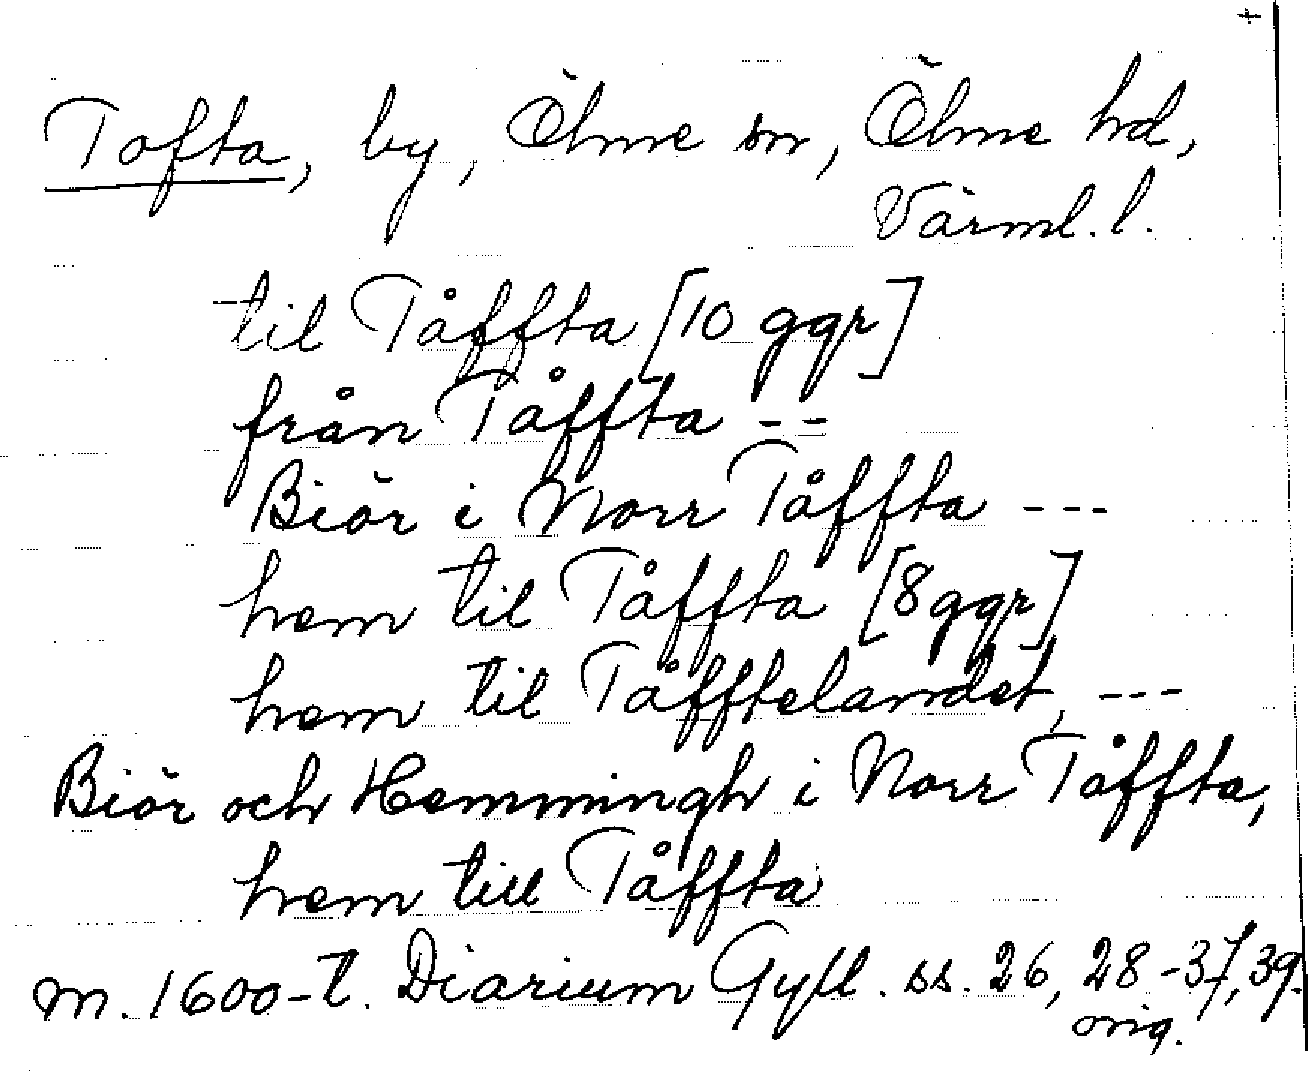 +
Tofta, by, Ölme sn, Ölme hd,
Värml. l.
til Tåffta [10 ggr]
från Tåffta --
Biör i Norr Tåffta ---
hem til Tåffta [8 ggr]
hem til Tåfftelandet, ---
Biör och Hemmingh i Norr Tåffta,
hem till Tåffta
m. 1600-t. Diarium Gyll. ss. 26, 28-37, 39.
orig.